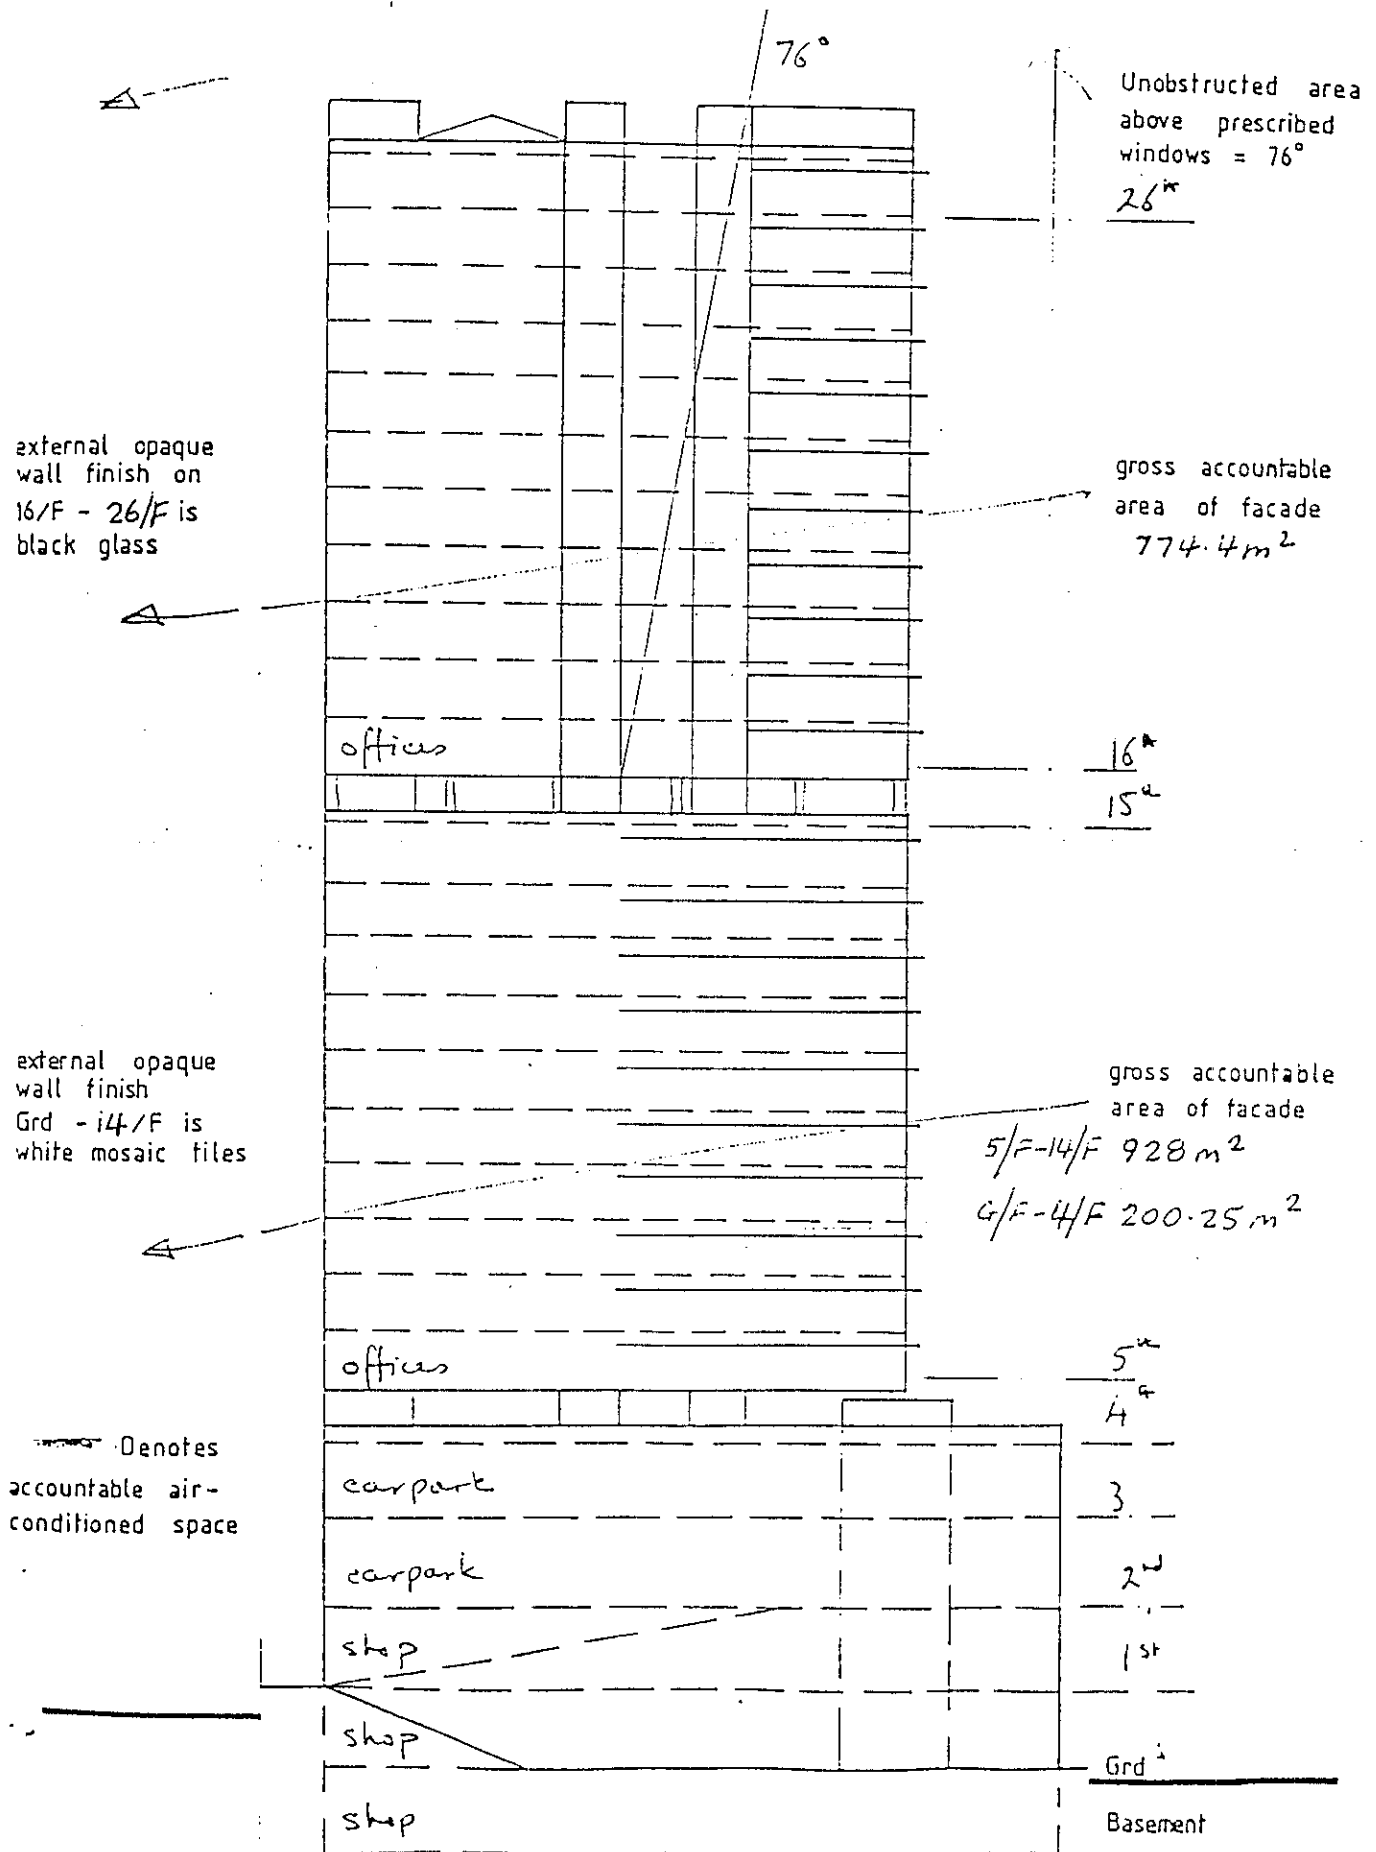 76°
Unobstructed area
above prescribed
windows = 76°
26th
external opaque
wall finish on
16/F - 26/F is
black glass
gross accountable
area of facade
774.4m²
offices
16th
15th
external opaque
wall finish
Grd - 14/F is
white mosaic tiles
gross accountable
area of facade
5/F-14/F 928m²
G/F-4/F 200.25m²
offices
5th
4th
Denotes
accountable air-
conditioned space
carpark
3
carpark
2nd
shop
1st
shop
Grd
shop
Basement